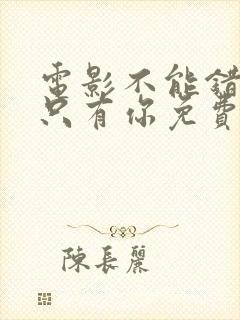 電影不能錯
只有你免費
陳長麗